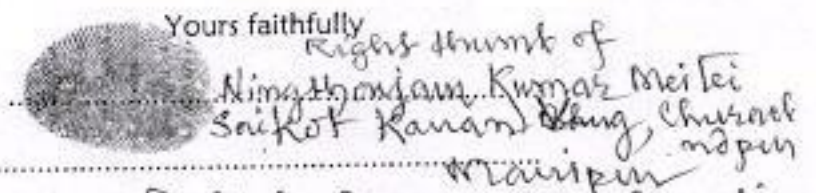 Yours faithfully
Right thumb of
Ningthonjam Kumar Meitei
Saikot Kanan, Churach
ndpur
Manipur